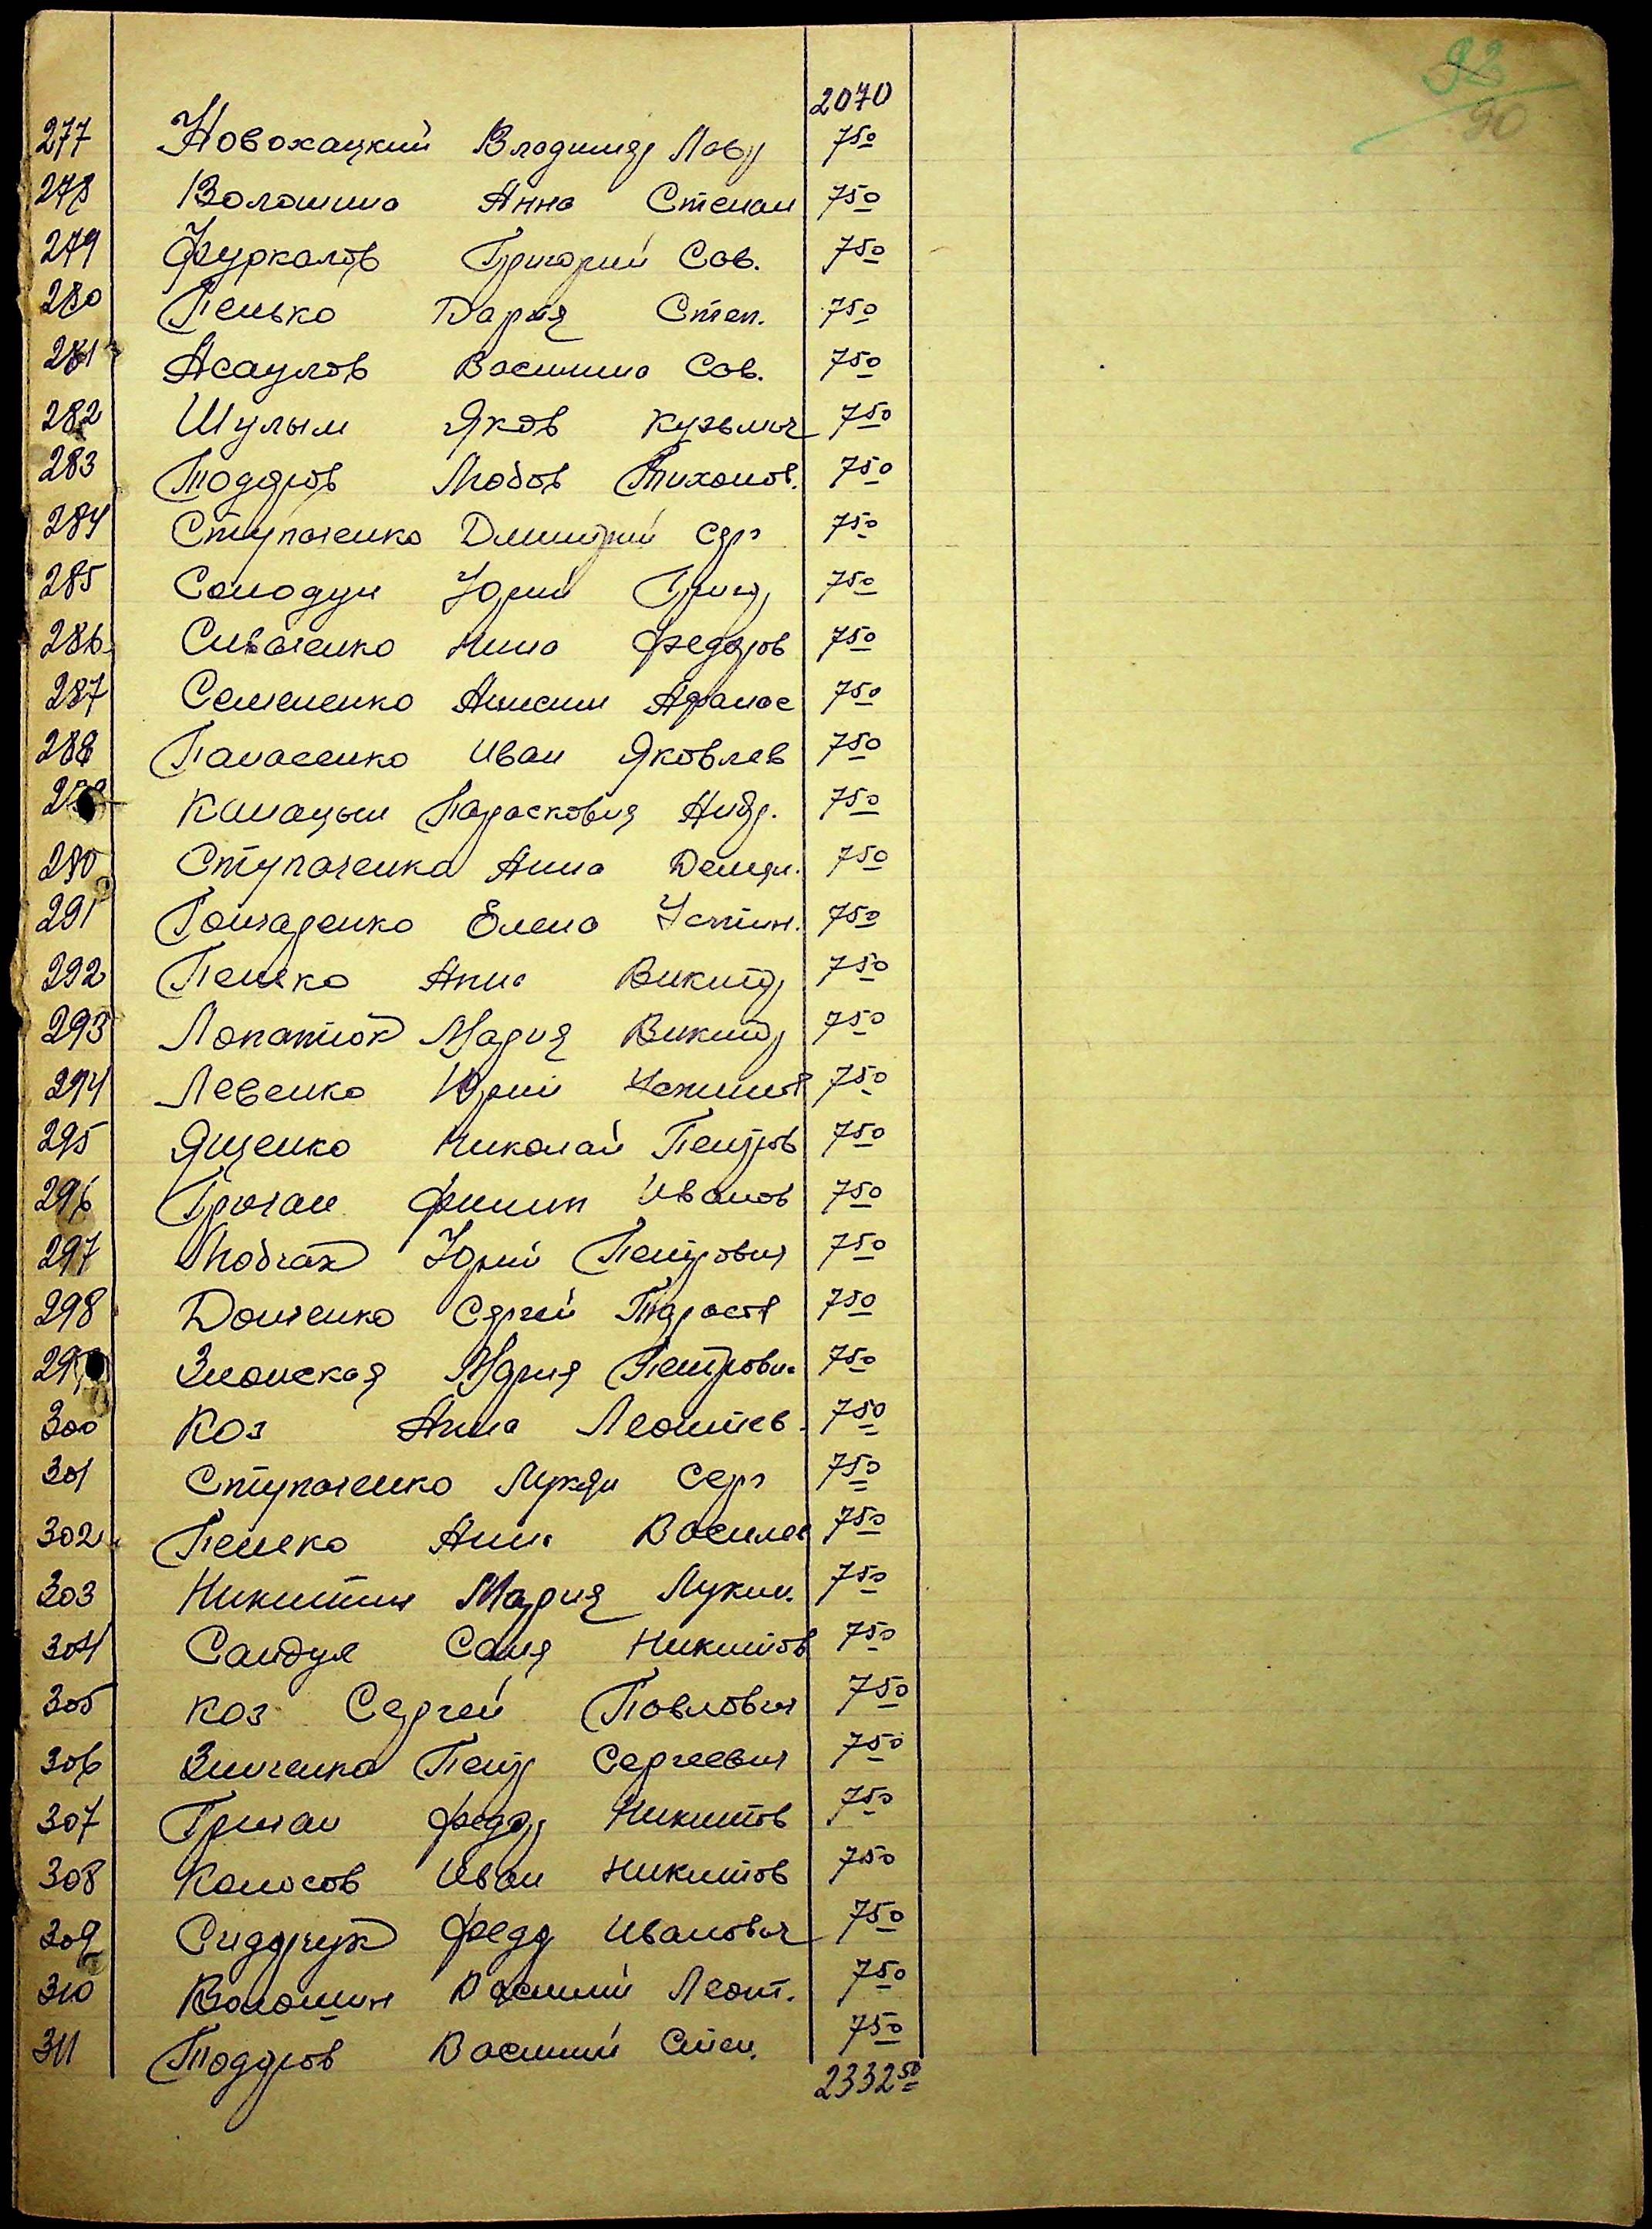 92
90
2070
277 Новохацкий Владимир Лавр 7 50
278 Волошина Анна Степан 7 50
279 Фуркалов Григорий Сав. 7 50
280 Пенько Дария Степ. 7 50
281 Асаулов Василина Сав. 7 50
282 Шулым Яков Кузьмич 7 50
283 Тодоров Любов Тихонов. 7 50
284 Ступаченко Дмитрий Серг 7 50
285 Солодун Юрий Григ 7 50
286 Сиваченко Нина Федоров 7 50
287 Семененко Анисим Афанас 7 50
288 Панасенко Иван Яковлев 7 50
289 Канацын Парасковия Андр. 7 50
290 Ступаченко Анна Демян. 7 50
291 Гончаренко Елена Устин. 7 50
292 Пенько Анна Викитор 7 50
293 Лопатюк Мария Викитор 7 50
294 Левенко Юрий Устинов 7 50
295 Ященко Николай Петров 7 50
296 Грачан Филип Иванов 7 50
297 Любчак Юрий Петрович 7 50
298 Донченко Сергей Тарасов 7 50
299 Злонская Мария Петровн. 7 50
300 Коз Анна Леонтев. 7 50
301 Ступаченко Лукян Серг 7 50
302 Пенько Анна Василев 7 50
303 Никитин Мария Лукин. 7 50
304 Сандул Саня Никитов 7 50
305 Коз Сергей Павлович 7 50
306 Зинченко Петр Сергеевич 7 50
307 Гричан Федор Никитов 7 50
308 Колосов Иван Никитов 7 50
309 Сидорчук Федор Иванович 7 50
310 Волошин Василий Леонт. 7 50
311 Тодоров Василий Степ. 7 50
2332 50